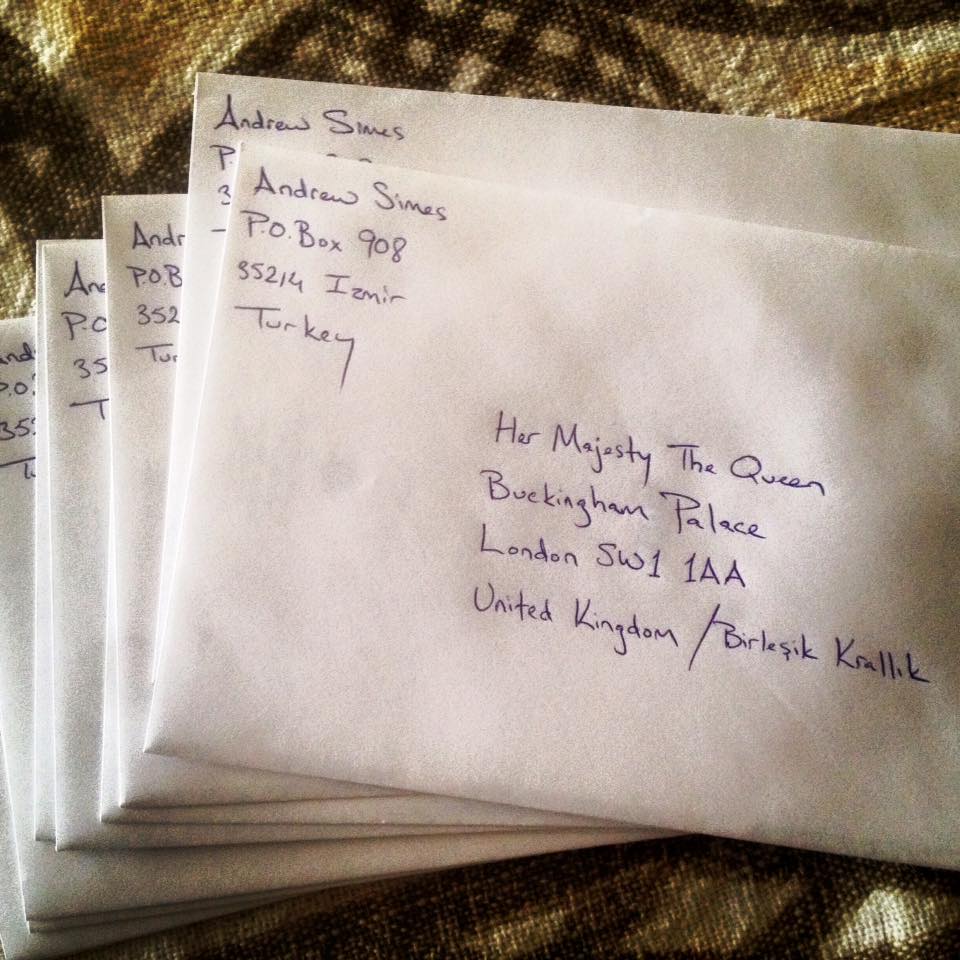 Andrew Simes
P.
3
Andrew Simes
P.O. Box 908
35214 Izmir
Turkey
Her Majesty The Queen
Buckingham Palace
London SW1 1AA
United Kingdom / Birleşik Krallık
Andr
P.O.B
352
Tur
An
P.O
35
T
and
P.O.
35